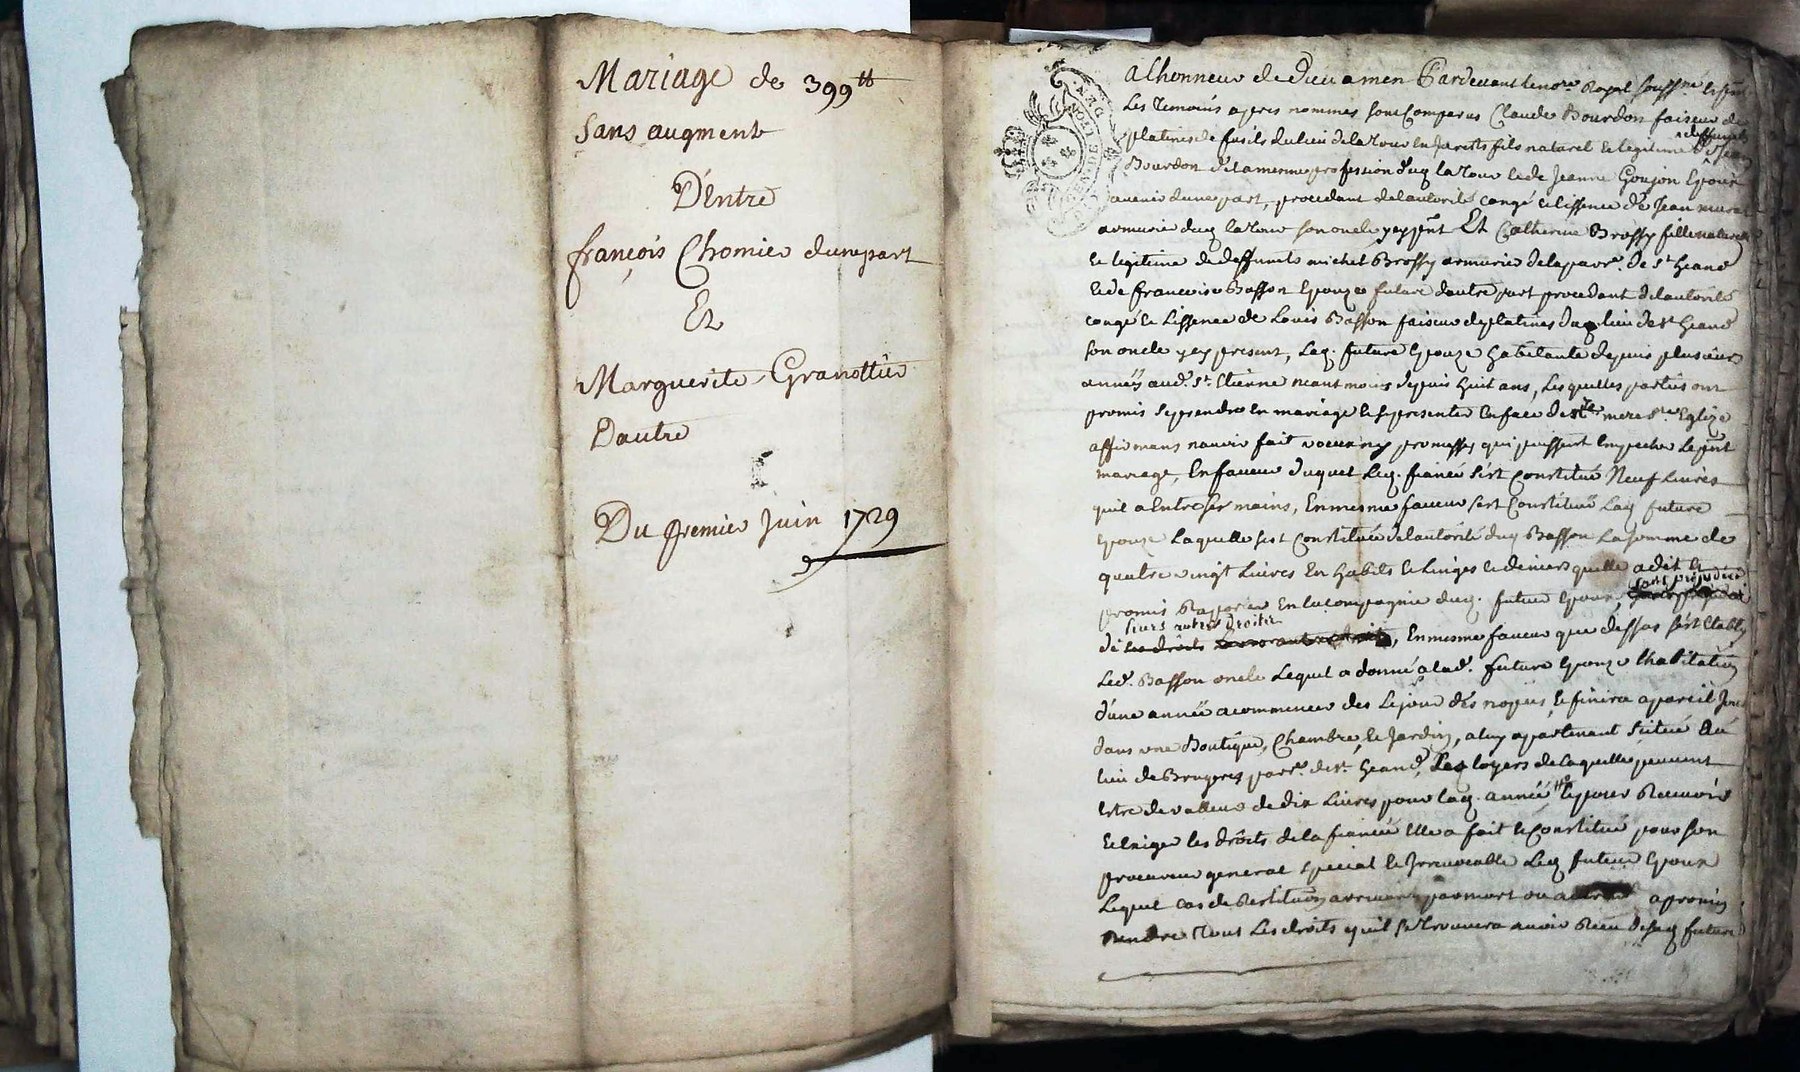 Mariage de 399 ₶
sans augment
D'Entre
françois Chomier dunepart
Et
Marguerite Granottier
Dautre
Du premier Juin 1729
a lhonneur de dieu amen Pardevant le no.re Royal soussné
Les temoins apres nommes sont Comparus Claude Bourdon faiseur de
platines de fusils du lieu de la tour en Jarests fils naturel et legitime
Bourdon de la mesme profession dud la tour et de Jeanne Goujon Epoux
avenir dune part, procedant de lautorité congé et lissence de Jean
armurier dud la tour son oncle yey pnt Et Catherine Brossy fille naturelle
et legitime de deffunts michel Brossy armurier de la parr.e de st heand
et de francoise Basson Epouze future dautre part procedant de lautorité
congé et Lissence de Louis Basson faiseur de platines dud lieu de st heand
son oncle yey present, Lad. future Epouze habitante depuis plusieurs
années aud. st. Etienne neantmoins depuis huit ans, Lesquelles parties ont
promis se prendre en mariage et se presenter en face de mere ste Eglize
affirmans navoir fait voeux ny promesses qui puissent empecher le pnt
mariage, En faveur duquel Led. fiancé sest Constitué Neuf Livres
quil a Entre ses mains, En mesme faveur sest Constitué Lad future
Epouze Laquelle sest Constituée de lautorité dud Basson La somme de
quatre vingt Livres En habits et Linges et deniers quelle a dit et
promis Raporter En la compagnie dud. futur Epoux, sans prejudice
leurs autres droits
de ses droits, En mesme faveur que dessus sest Etably
Led. Basson oncle Lequel a donné a lad. future Epouze lhabitation
d'une année a commencer des Le jour des nopces, et finira a pareil Jour
dans une Boutique, Chambre, et Jardin, a luy apartenant Scitué au
lieu de Bruyeres parr.e de st. heand, Les loyers de laquelle peuvent
Estre de valleur de dix Livres pour lad. année et pour Recevoir
Et Exiger les droits de la fiancée Elle a fait et Constitué pour son
procureur general special et Irrevocable Led futur Epoux
Lequel cas de Restitution arrivant par mort ou autrement a promis
Rendre tous Les droits quil se trouvera avoir Receu de lad future